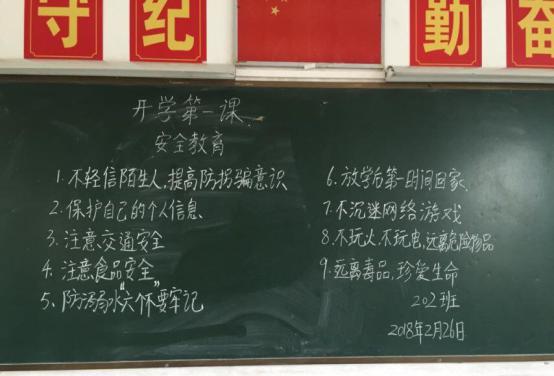 守 纪
勤 奋
开学第一课
安全教育
1.不轻信陌生人,提高防拐骗意识
2.保护自己的个人信息
3.注意交通安全
4.注意食品安全
5、防溺水“六不”要牢记
6.放学后第一时间回家
7.不沉迷网络游戏
8.不玩火,不玩电,远离危险物品
9.远离毒品,珍爱生命
202班
2018年2月26日